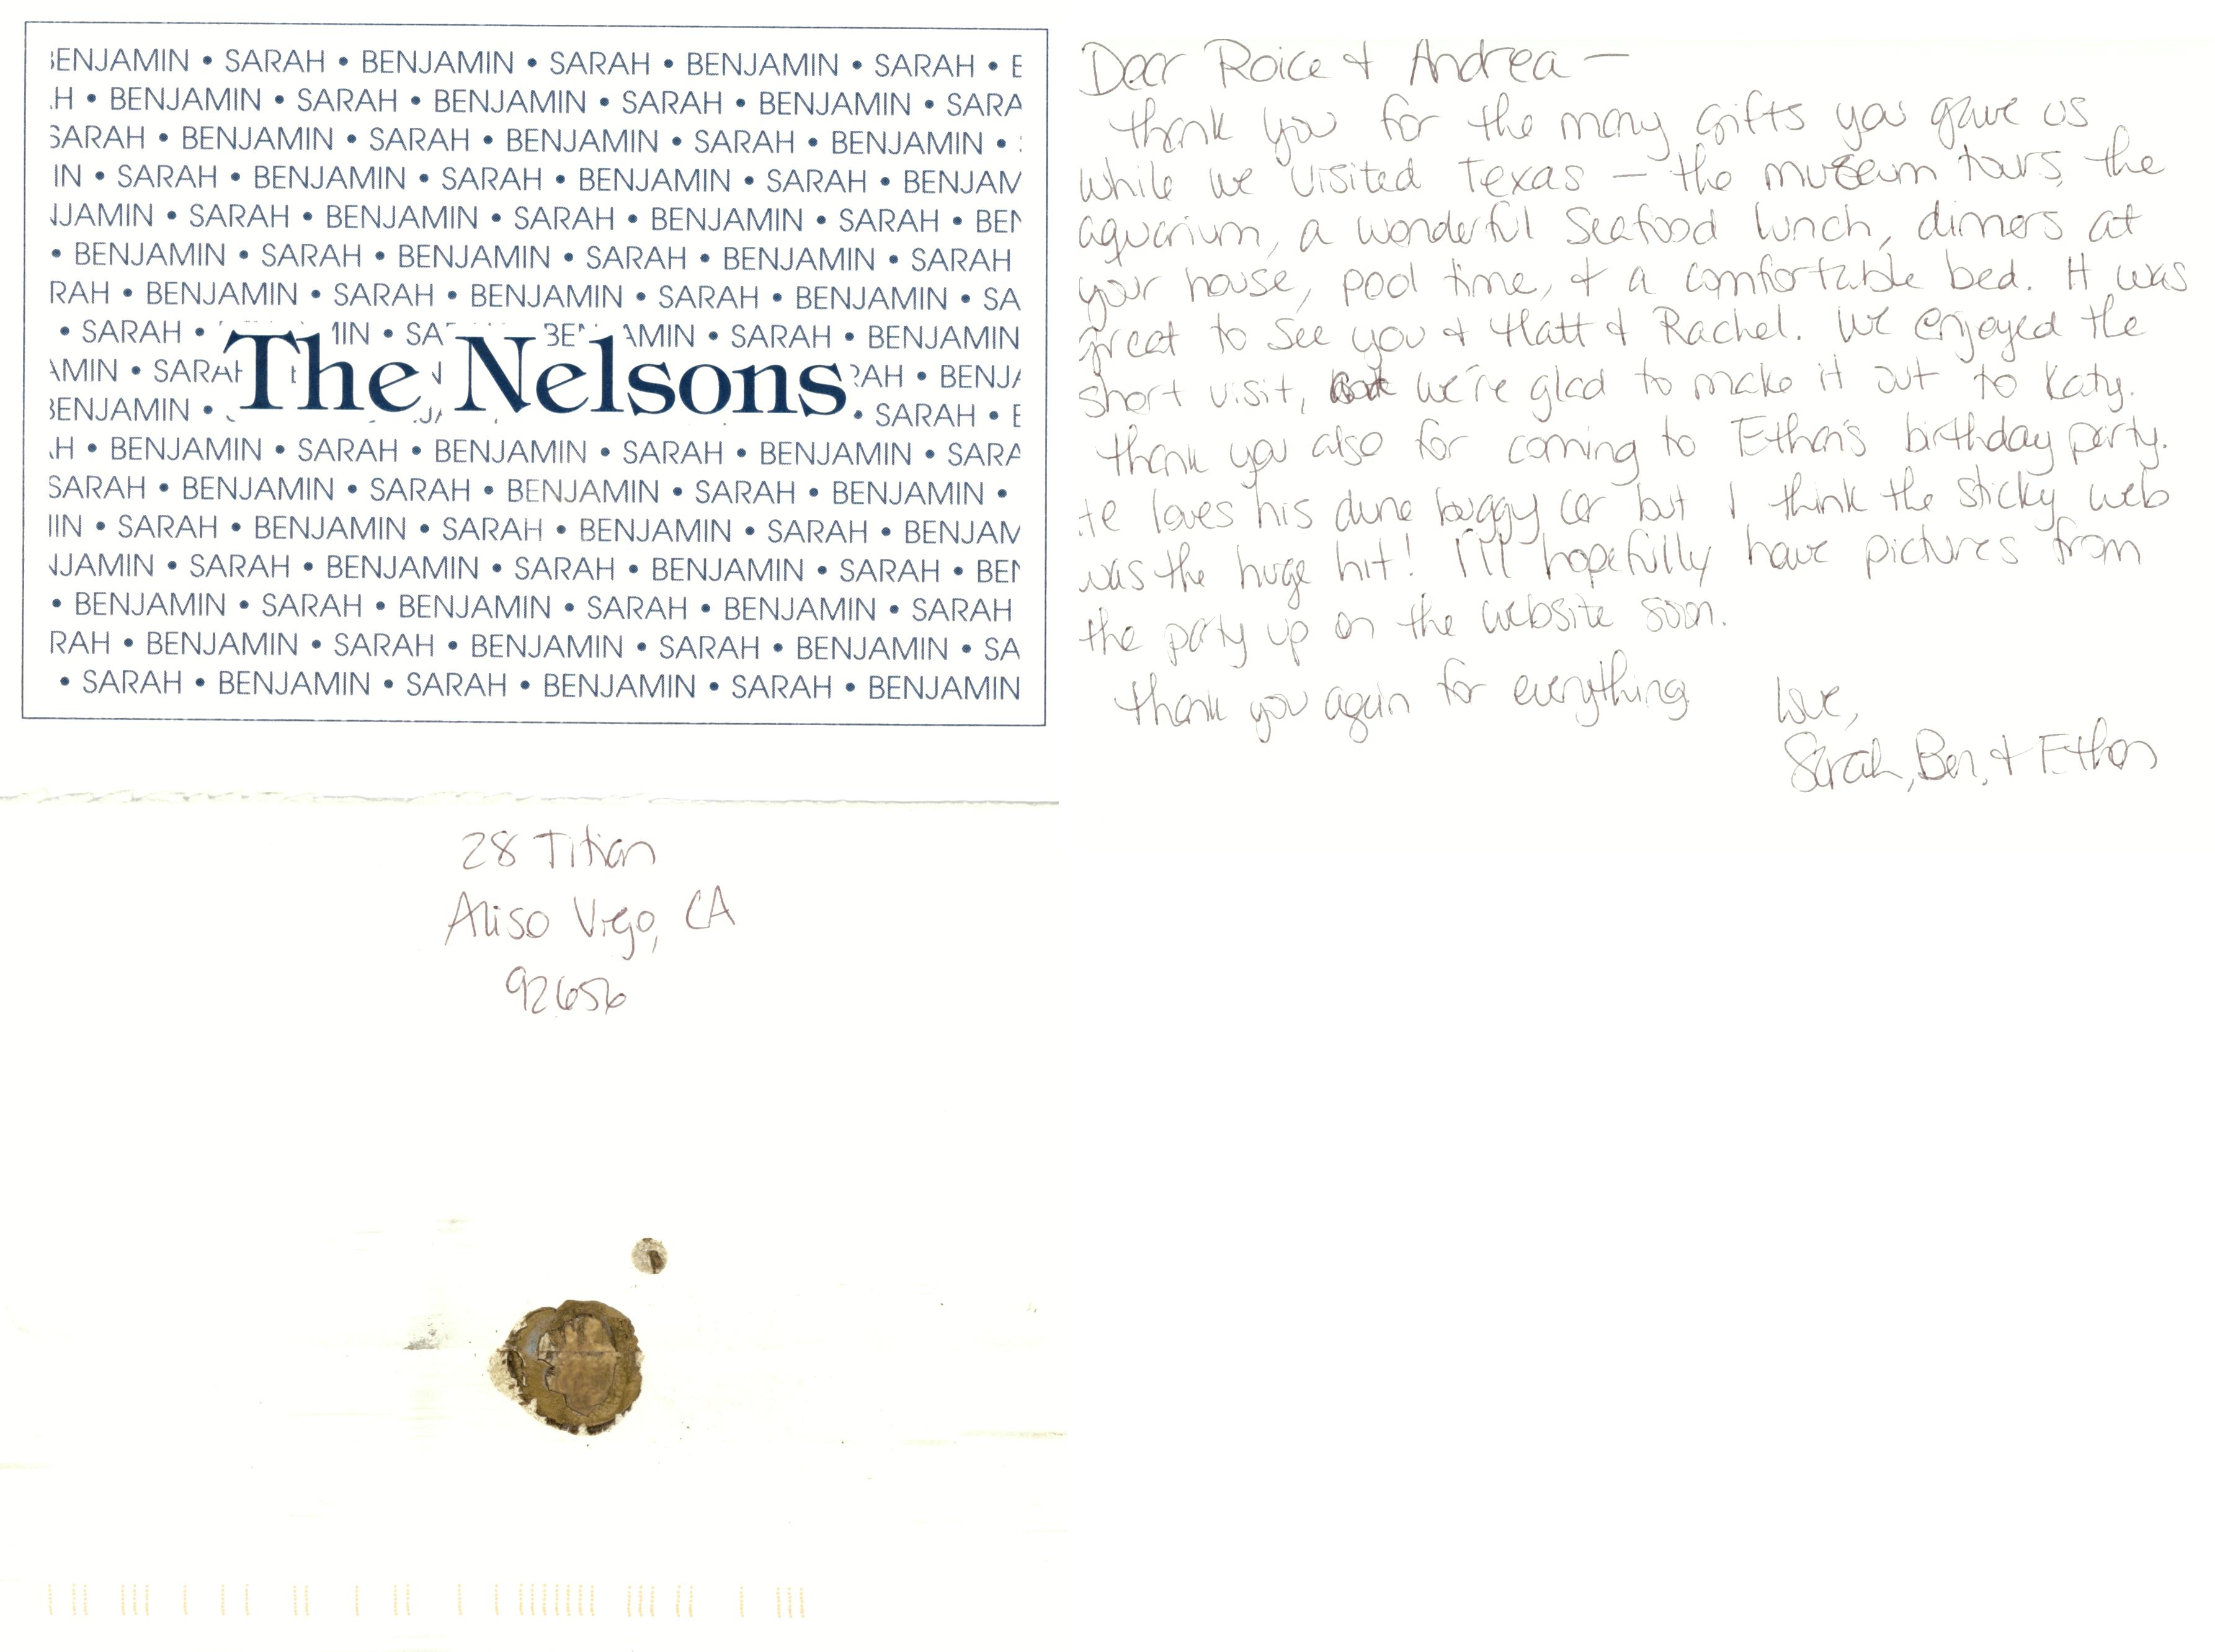 ENJAMIN • SARAH • BENJAMIN • SARAH • BENJAMIN • SARAH •
H • BENJAMIN • SARAH • BENJAMIN • SARAH • BENJAMIN • SARA
SARAH • BENJAMIN • SARAH • BENJAMIN • SARAH • BENJAMIN •
IN • SARAH • BENJAMIN • SARAH • BENJAMIN • SARAH • BENJAM
JAMIN • SARAH • BENJAMIN • SARAH • BENJAMIN • SARAH • BEN
• BENJAMIN • SARAH • BENJAMIN • SARAH • BENJAMIN • SARAH
RAH • BENJAMIN • SARAH • BENJAMIN • SARAH • BENJAMIN • SA
• SARAH • MIN • SA BE AMIN • SARAH • BENJAMIN
The Nelsons
AMIN • SARAH RAH • BENJA
BENJAMIN • • SARAH •
H • BENJAMIN • SARAH • BENJAMIN • SARAH • BENJAMIN • SARA
SARAH • BENJAMIN • SARAH • BENJAMIN • SARAH • BENJAMIN •
IN • SARAH • BENJAMIN • SARAH • BENJAMIN • SARAH • BENJAM
JAMIN • SARAH • BENJAMIN • SARAH • BENJAMIN • SARAH • BEN
• BENJAMIN • SARAH • BENJAMIN • SARAH • BENJAMIN • SARAH
RAH • BENJAMIN • SARAH • BENJAMIN • SARAH • BENJAMIN • SA
• SARAH • BENJAMIN • SARAH • BENJAMIN • SARAH • BENJAMIN
Dear Roice & Andrea –
Thank you for the many gifts you gave us
while we visited Texas – the museum tours, the
aquarium, a wonderful seafood lunch, dinners at
your house, pool time, & a comfortable bed. It was
great to see you & Matt & Rachel. We enjoyed the
short visit, but we're glad to make it out to Katy.
Thank you also for coming to Ethan's birthday party.
He loves his dune buggy car but I think the sticky web
was the huge hit! I'll hopefully have pictures from
the party up on the website soon.
Thank you again for everything
Love,
Sarah, Ben, & Ethan
28 Titian
Aliso Viejo, CA
92656